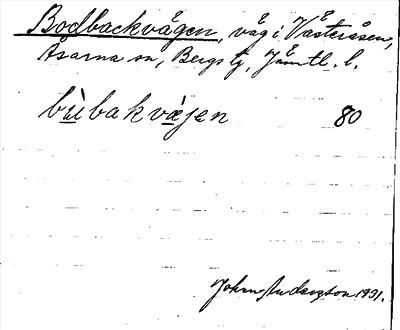 Bodbackvägen, väg i Västeråsen,
Åsarna sn, Bergs tg, Jämtl. l.
bùbakvä́jen 80
John Anderzson 1931.